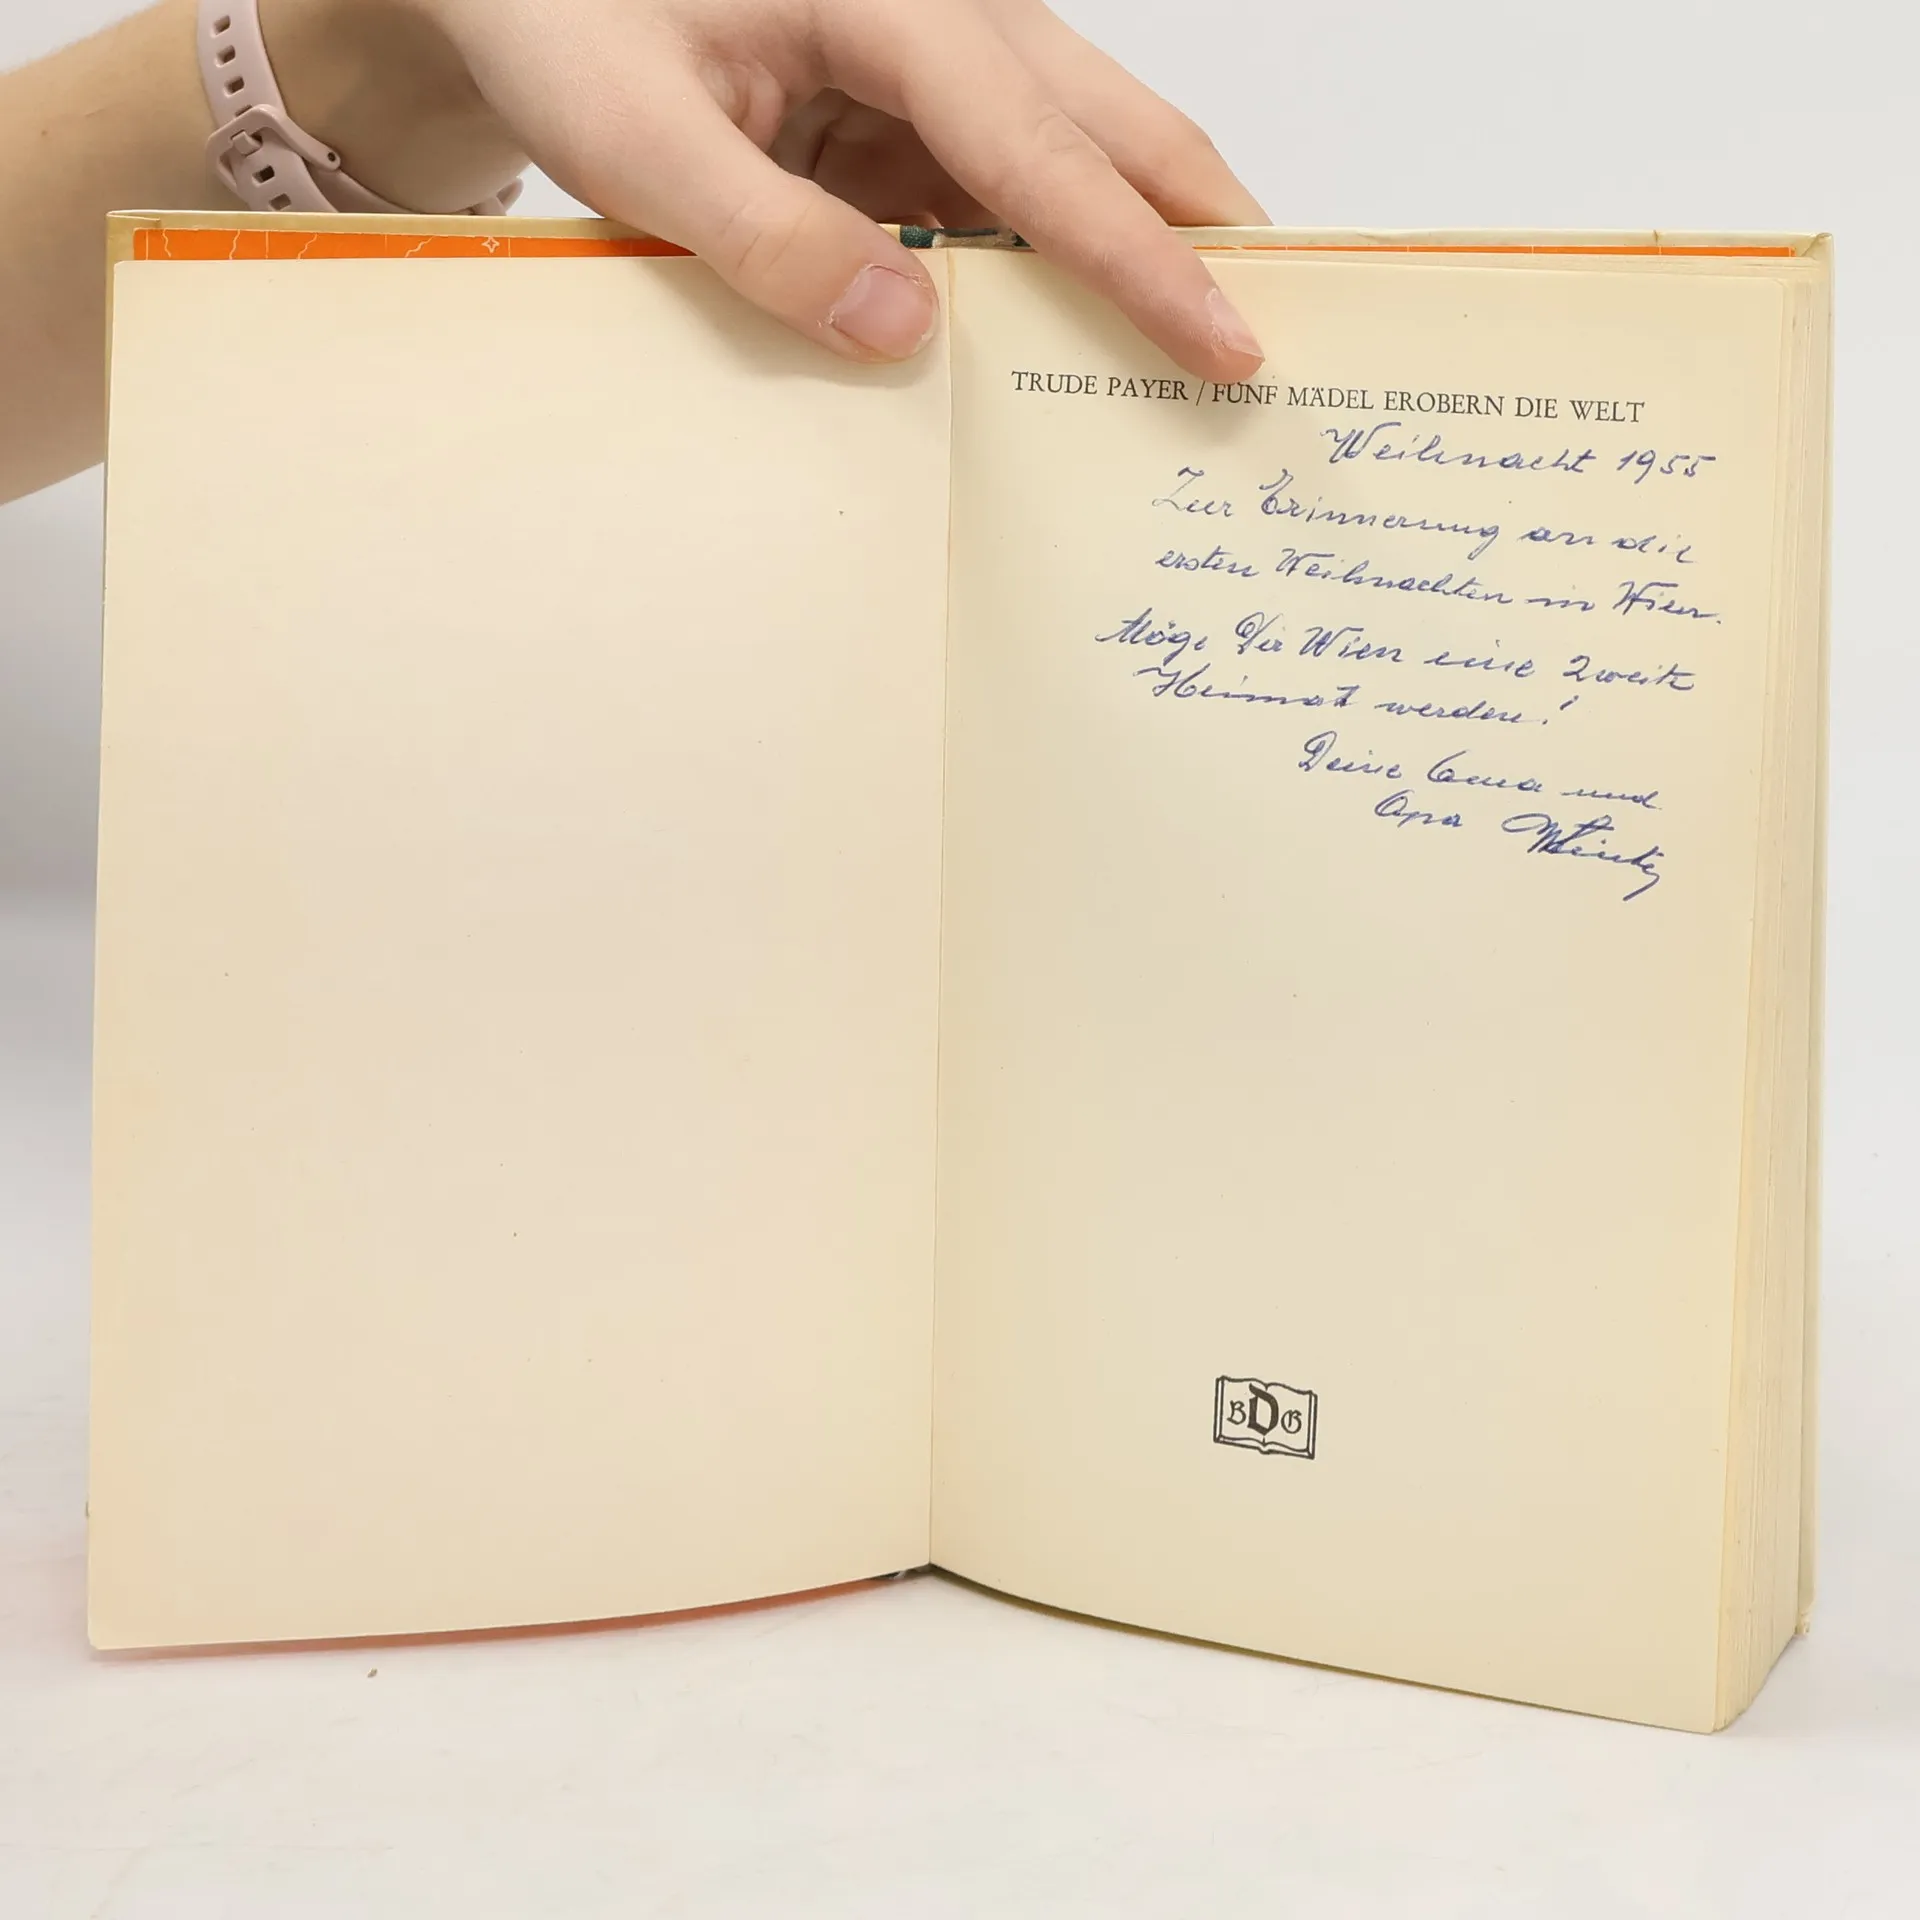 TRUDE PAYER / FÜNF MÄDEL EROBERN DIE WELT
Weihnacht 1955
Zur Erinnerung an die
ersten Weihnachten in Wien.
Möge Dir Wien eine zweite
Heimat werden!
Deine Oma und
Opa
B D G